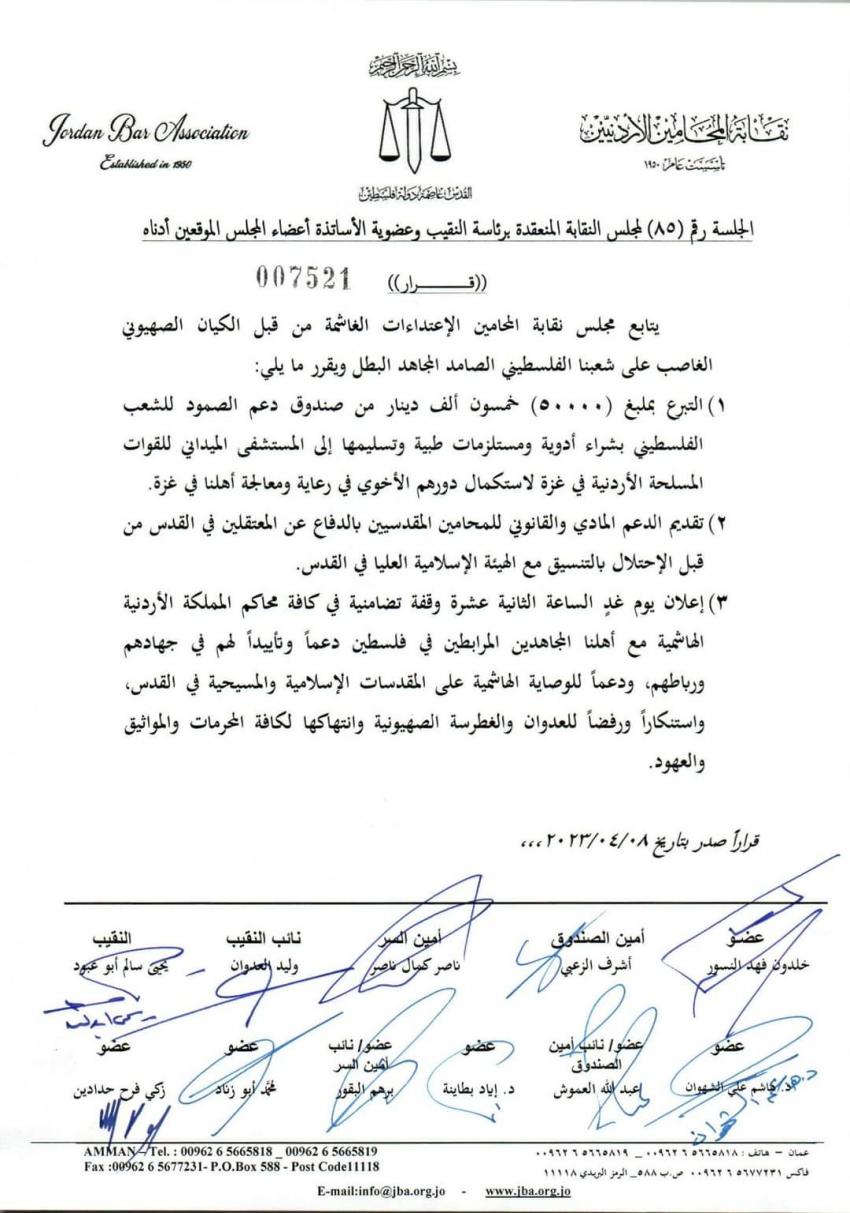 بسم الله الرحمن الرحيم
Jordan Bar Association
Established in 1950
نقابة المحامين الأردنيين
تأسست عام ١٩٥٠
القدس عاصمة دولة فلسطين
الجلسة رقم (٨٥) لمجلس النقابة المنعقدة برئاسة النقيب وعضوية الأساتذة أعضاء المجلس الموقعين أدناه
((قـــــرار)) 007521
يتابع مجلس نقابة المحامين الإعتداءات الغاشمة من قبل الكيان الصهيوني
الغاصب على شعبنا الفلسطيني الصامد المجاهد البطل ويقرر ما يلي:
١) التبرع بملبغ (٥٠٠٠٠) خمسون ألف دينار من صندوق دعم الصمود للشعب
الفلسطيني بشراء أدوية ومستلزمات طبية وتسليمها إلى المستشفى الميداني للقوات
المسلحة الأردنية في غزة لاستكمال دورهم الأخوي في رعاية ومعالجة أهلنا في غزة.
٢) تقديم الدعم المادي والقانوني للمحامين المقدسيين بالدفاع عن المعتقلين في القدس من
قبل الإحتلال بالتنسيق مع الهيئة الإسلامية العليا في القدس.
٣) إعلان يوم غدٍ الساعة الثانية عشرة وقفة تضامنية في كافة محاكم المملكة الأردنية
الهاشمية مع أهلنا المجاهدين المرابطين في فلسطين دعماً وتأييداً لهم في جهادهم
ورباطهم، ودعماً للوصاية الهاشمية على المقدسات الإسلامية والمسيحية في القدس،
واستنكاراً ورفضاً للعدوان والغطرسة الصهيونية وانتهاكها لكافة المحرمات والمواثيق
والعهود.
قراراً صدر بتاريخ ٢٠٢٣/٠٤/٠٨،،،
عضو أمين الصندوق أمين السر نائب النقيب النقيب
خلدون فهد النسور أشرف الزعبي ناصر كمال ناصر وليد العدوان يحيى سالم أبو عبود
عضو عضو/ نائب أمين عضو عضو/ نائب عضو عضو
الصندوق أمين السر
د. هاشم علي الشهوان عبد الله العموش د. إياد بطاينة برهم البقور محمد أبو زناد زكي فرح حدادين
AMMAN – Tel. : 00962 6 5665818 _ 00962 6 5665819
عمان – هاتف : ٥٦٦٥٨١٨ ٦ ٠٠٩٦٢ _ ٥٦٦٥٨١٩ ٦ ٠٠٩٦٢
Fax :00962 6 5677231- P.O.Box 588 - Post Code11118
فاكس ٥٦٧٧٢٣١ ٦ ٠٠٩٦٢ ص.ب ٥٨٨_ الرمز البريدي ١١١١٨
E-mail:info@jba.org.jo - www.jba.org.jo